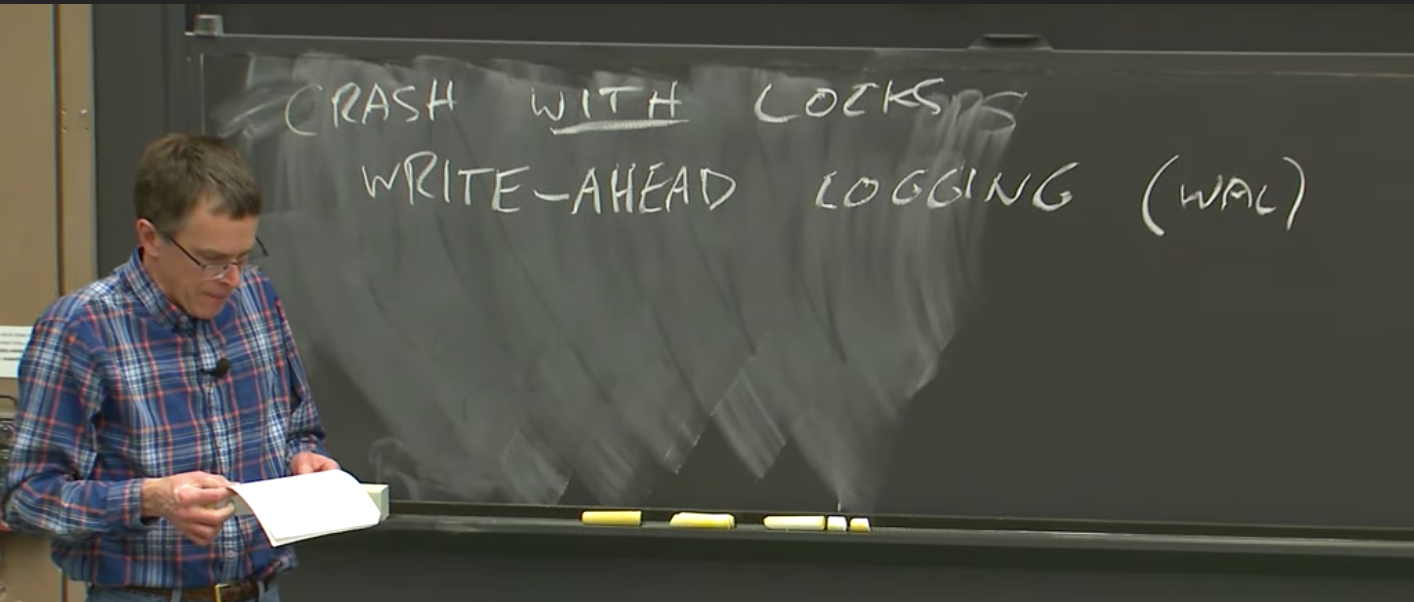 CRASH WITH LOCKS
WRITE-AHEAD LOGGING (WAL)